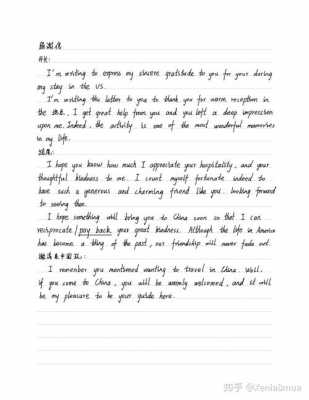 感谢信
开头:
I'm writing to express my sincere gratitude to you for your during
my stay in the US.
I'm writing this letter to you to thank you for warm reception in
the 地点. I get great help from you and you left a deep impression
upon me. Indeed, the activity is one of the most wonderful memories
in my life.
结尾:
I hope you know how much I appreciate your hospitality, and your
thoughtful kindness to me. I count myself fortunate indeed to
have such a generous and charming friend like you. looking forward
to seeing then.
I hope something will bring you to China soon so that I can
reciprocate / pay back your great kindness. Although the life in America
has become a thing of the past, our friendship will never fade out.
邀请来中国玩:
I remember you mentioned wanting to travel in China. Well,
if you come to China, you will be warmly welcomed, and it will
be my pleasure to be your guide here.
知乎 @Xenia3mua